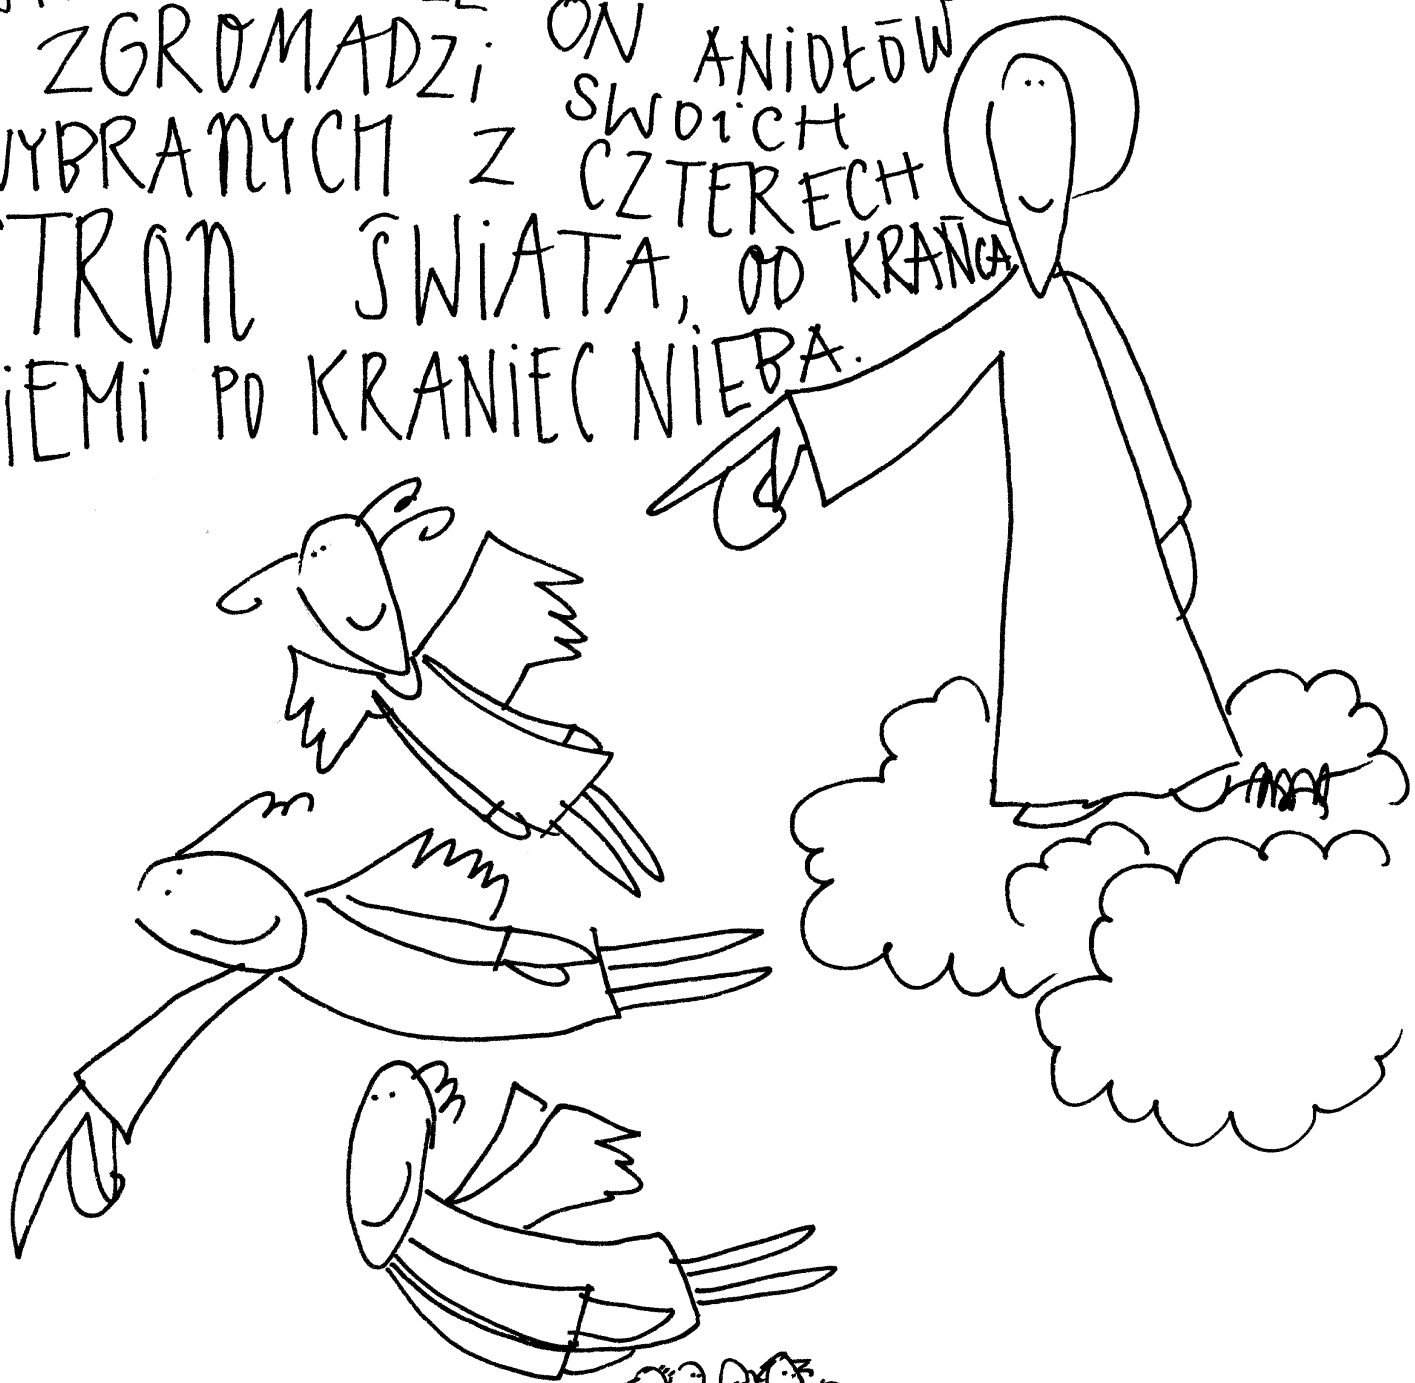 ZGROMADZi ON ANiOŁÓW
SWOiCH
WYBRANYCH Z CZTERECH
STRON ŚWiATA, OD KRAŃCA
ZiEMi PO KRANiEC NiEBA.